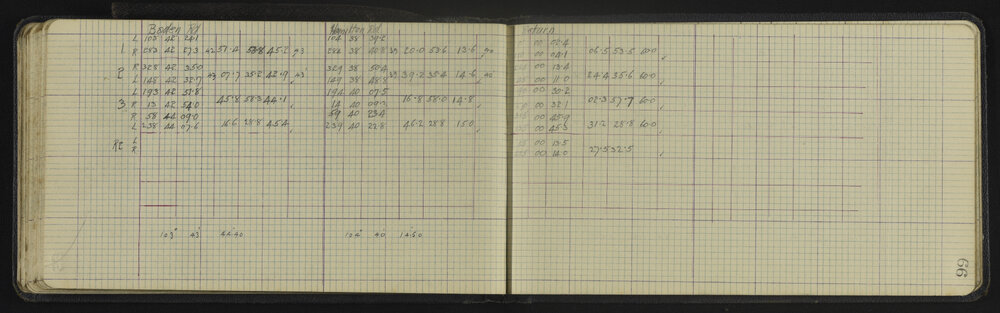 Boden Rd Hamilton Rd Return
L 103 42 29.1 104 38 39.2 00 02.4
1 R 283 42 27.3 42 51.4 53.8 45.2 43 284 38 40.8 39 20.0 53.6 13.6 40 00 04.1 06.5 53.5 60.0
R 328 42 35.0 329 38 50.4 00 13.4
2 L 148 42 32.7 43 07.7 35.2 42.9 43 149 38 48.8 39 39.2 35.4 14.6 40 00 11.0 24.4 35.6 60.0
L 193 42 51.8 194 40 07.5 00 30.2
3 R 13 42 54.0 45.8 58.3 44.1 14 40 09.3 16.8 58.0 14.8 00 32.1 02.3 57.7 60.0
R 58 44 09.0 59 40 23.4 00 45.9
L 238 44 07.6 16.6 28.8 45.4 239 40 22.8 46.2 28.8 15.0 00 45.3 31.2 28.8 60.0
Re L 00 13.5
R 00 14.0 27.5 32.5
103° 43' 44.40 104° 40 14.50
66